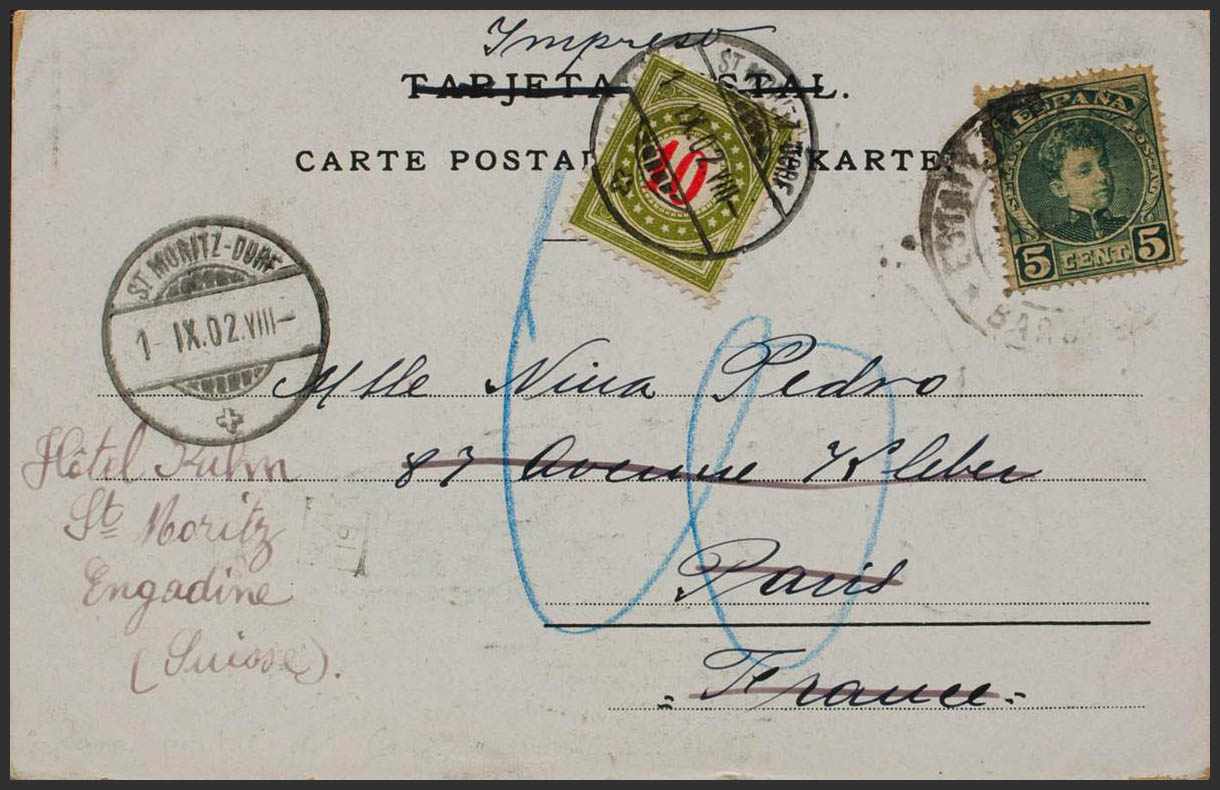 Impreso
TARJETA POSTAL.
CARTE POSTA KARTE
ST MORITZ-DORF
1 IX.02.VIII–
10
ESPAÑA
5 CENT. 5
ST MORITZ-DORF
1– IX.02.VIII–
Mlle Nina Pedro
87 Avenue Kleber
Paris
France
Hôtel Kulm
St Moritz
Engadine
(Suisse).